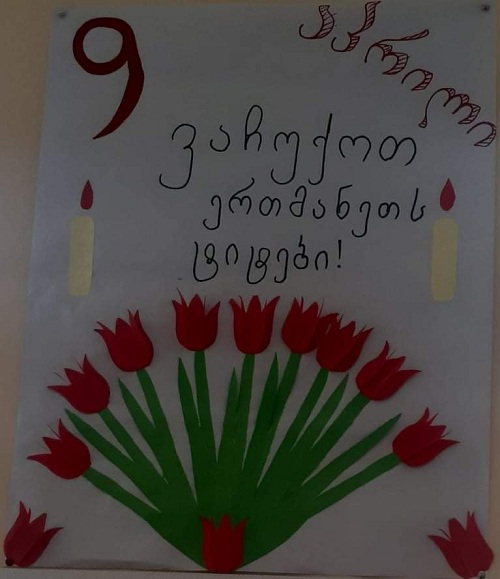 9 აპრილი
ვაჩუქოთ
ერთმანეთს
ტიტები!